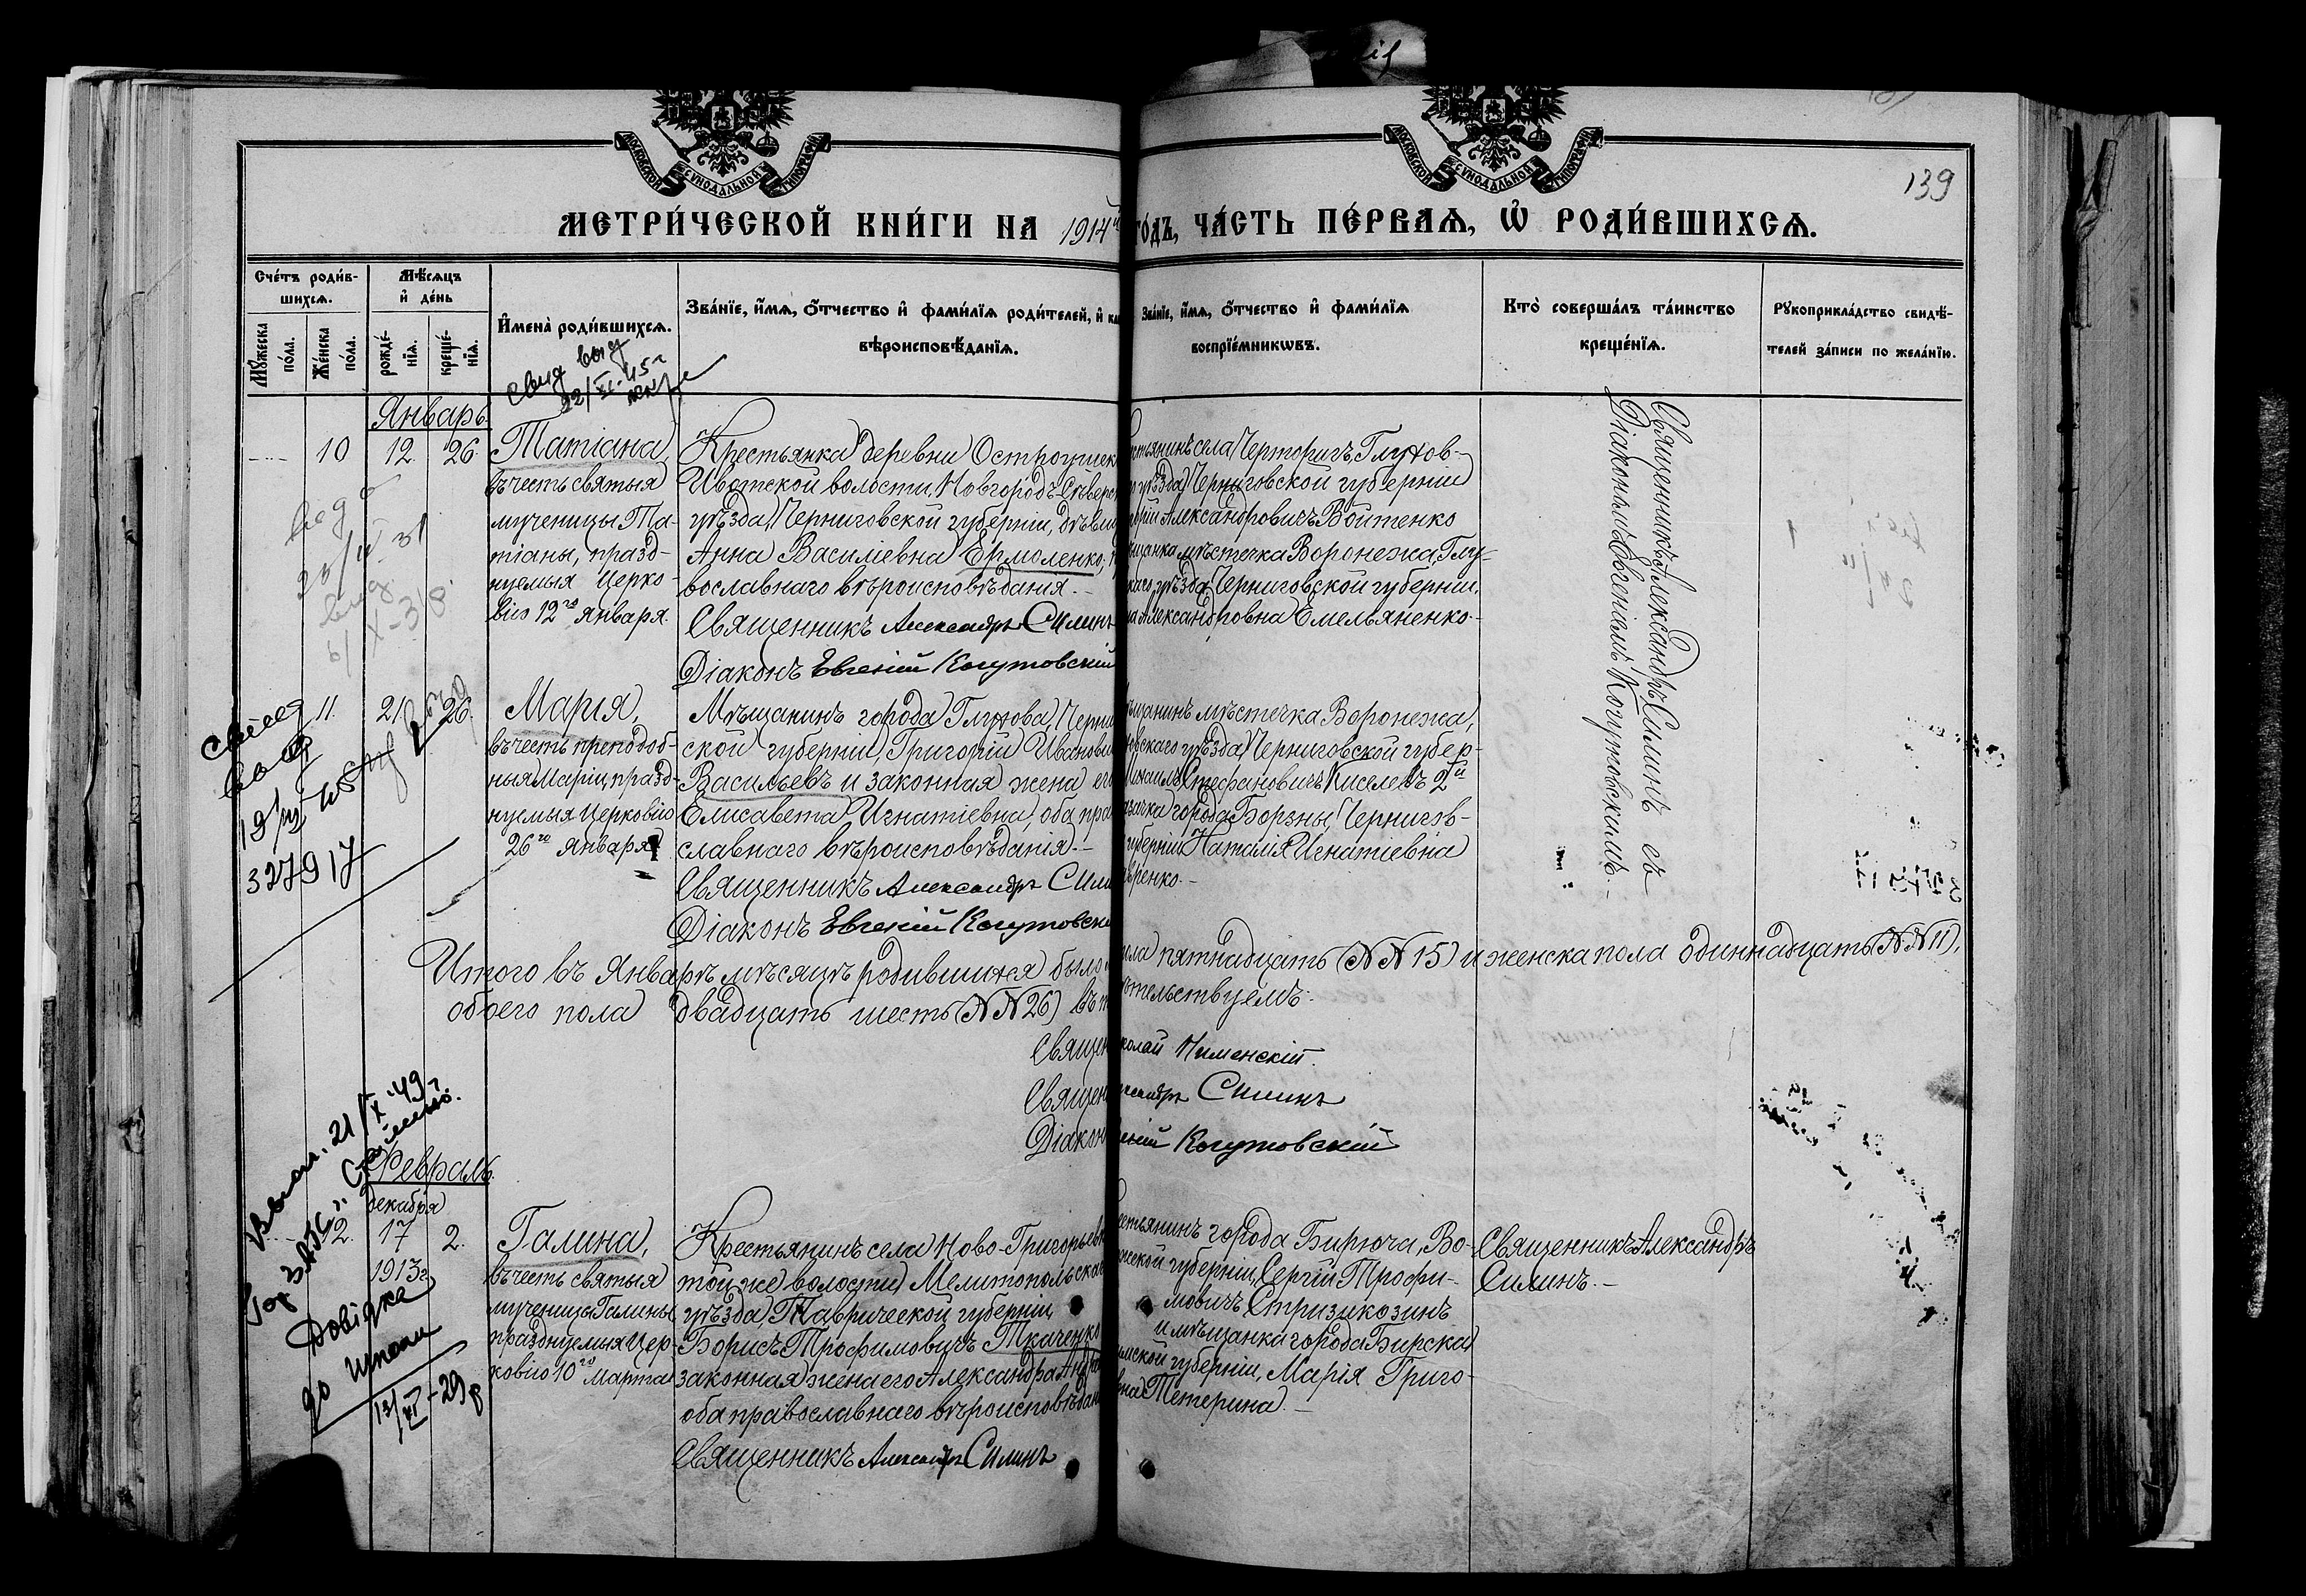 139
МОСКОВСКОЙ СѴНОДАЛЬНОЙ ТИПОГРАФІИ
МОСКОВСКОЙ СѴНОДАЛЬНОЙ ТИПОГРАФІИ
МЕТРИ́ЧЕСКОЙ КНИ́ГИ НА 1914й
ГО́ДЪ, ЧА́СТЬ ПЕ́РВАѦ, Ѡ҆ РОДИ́ВШИХСѦ.
Сче́тъ роди́в-
шихсѧ.
Мꙋ́жеска по́ла.
Же́нска по́ла.
Мѣ́сѧцъ
и҆ де́нь
рожде́-
нїѧ.
креще́-
нїѧ.
И҆мена̀ роди́вшихсѧ.
Зва́нїе, и҆́мѧ, ѻ҆́тчество и҆ фамѝлїѧ роди́телей, и҆
вѣроисповѣ́данїѧ.
Зва́нїе, и҆́мѧ, ѻ҆́тчество и҆ фамѝлїѧ
воспрїе́мникѡвъ.
Кто̀ соверша́лъ та́инство
креще́нїѧ.
Рꙋкоприкла́дство свидѣ́-
телей за́писи по жела́нїю.
Свид выд
22/XI-45г
Январь.
10 12. 26. Татіана,
въ честь святыя
мученицы Та-
тіаны, празд-
нуемыя Церко-
вію 12го Января.
Крестьянка деревни Остроушек
Ивотской волости, Новгородъ-Северс
уѣзда, Черниговской губерніи, дѣви
Анна Василіевна Ермоленко,
вославнаго вѣроисповѣданія.-
Священникъ Александръ Силинъ
Діаконъ Евгеній Когутовскій
стьянинъ села Черторигъ, Глухов-
уѣзда, Черниговской губерніи
Александровичъ Войтенко
щанка мѣстечка Воронежа, Глу-
уѣзда, Черниговской губерніи,
Александровна Емельяненко.-
Священникъ Александръ Силинъ съ
Діакономъ Евгеніемъ Когутовскимъ.-
11. 21. 26. Марія,
въ честь преподоб-
ныя Маріи, празд-
нуемыя Церковію
26го Января.
Мѣщанинъ города Глухова, Черни
ской губерніи, Григорій Иванови
Васильевъ и законная жена его
Елисавета Игнатіевна, оба пра
славнаго вѣроисповѣданія.-
Священникъ Александръ Сили
Діаконъ Евгеній Когутовски
щанинъ мѣстечка Воронежа,
скаго уѣзда, Черниговской губер-
Стефановичъ Киселевъ 2й
города Борзны, Черниговъ-
губерніи Наталія Игнатіевна
ренко.-
327917
Итого въ Январѣ мѣсяцѣ родившихся было
пола пятнадцать (№№ 15) и женска пола одиннадцать (№№ 11),
обоего пола двадцать шесть (№№ 26) въ
тельствуемъ:
Священ
колай Пименскій.
Священ
ксандръ Силинъ
Діакон
ній Когутовскій
21/X-49г.
Февраль.
декабря
2. 17 2. Галина,
1913г.
въ честь святыя
мученицы Галины
празднуемыя Цер-
ковію 10го Марта
Крестьянинъ села Ново-Григорьевк
той же волости, Мелитопольскаг
уѣзда, Таврической губерніи,
Борисъ Трофимовичъ Ткаченко
законная жена его Александра Андре
оба православнаго вѣроисповѣдан
Священникъ Александръ Силинъ
стьянинъ города Бирюча, Во-
жской губерніи, Сергій Трофи-
мовичъ Стризикозинъ
и мѣщанка города Бирска
имской губерніи, Марія Григо-
вна Тетерина.-
Священникъ Александръ
Силинъ.-
Довідка
до
13/XI-29р